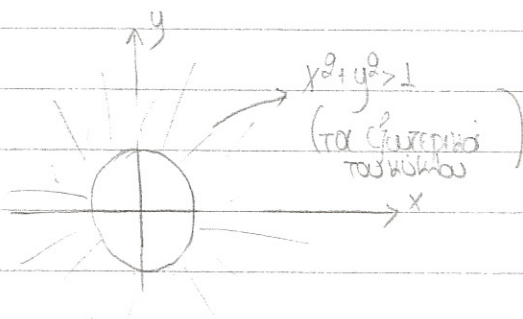 y
x²+y²>1
(τα εξωτερικά
του κύκλου)
x